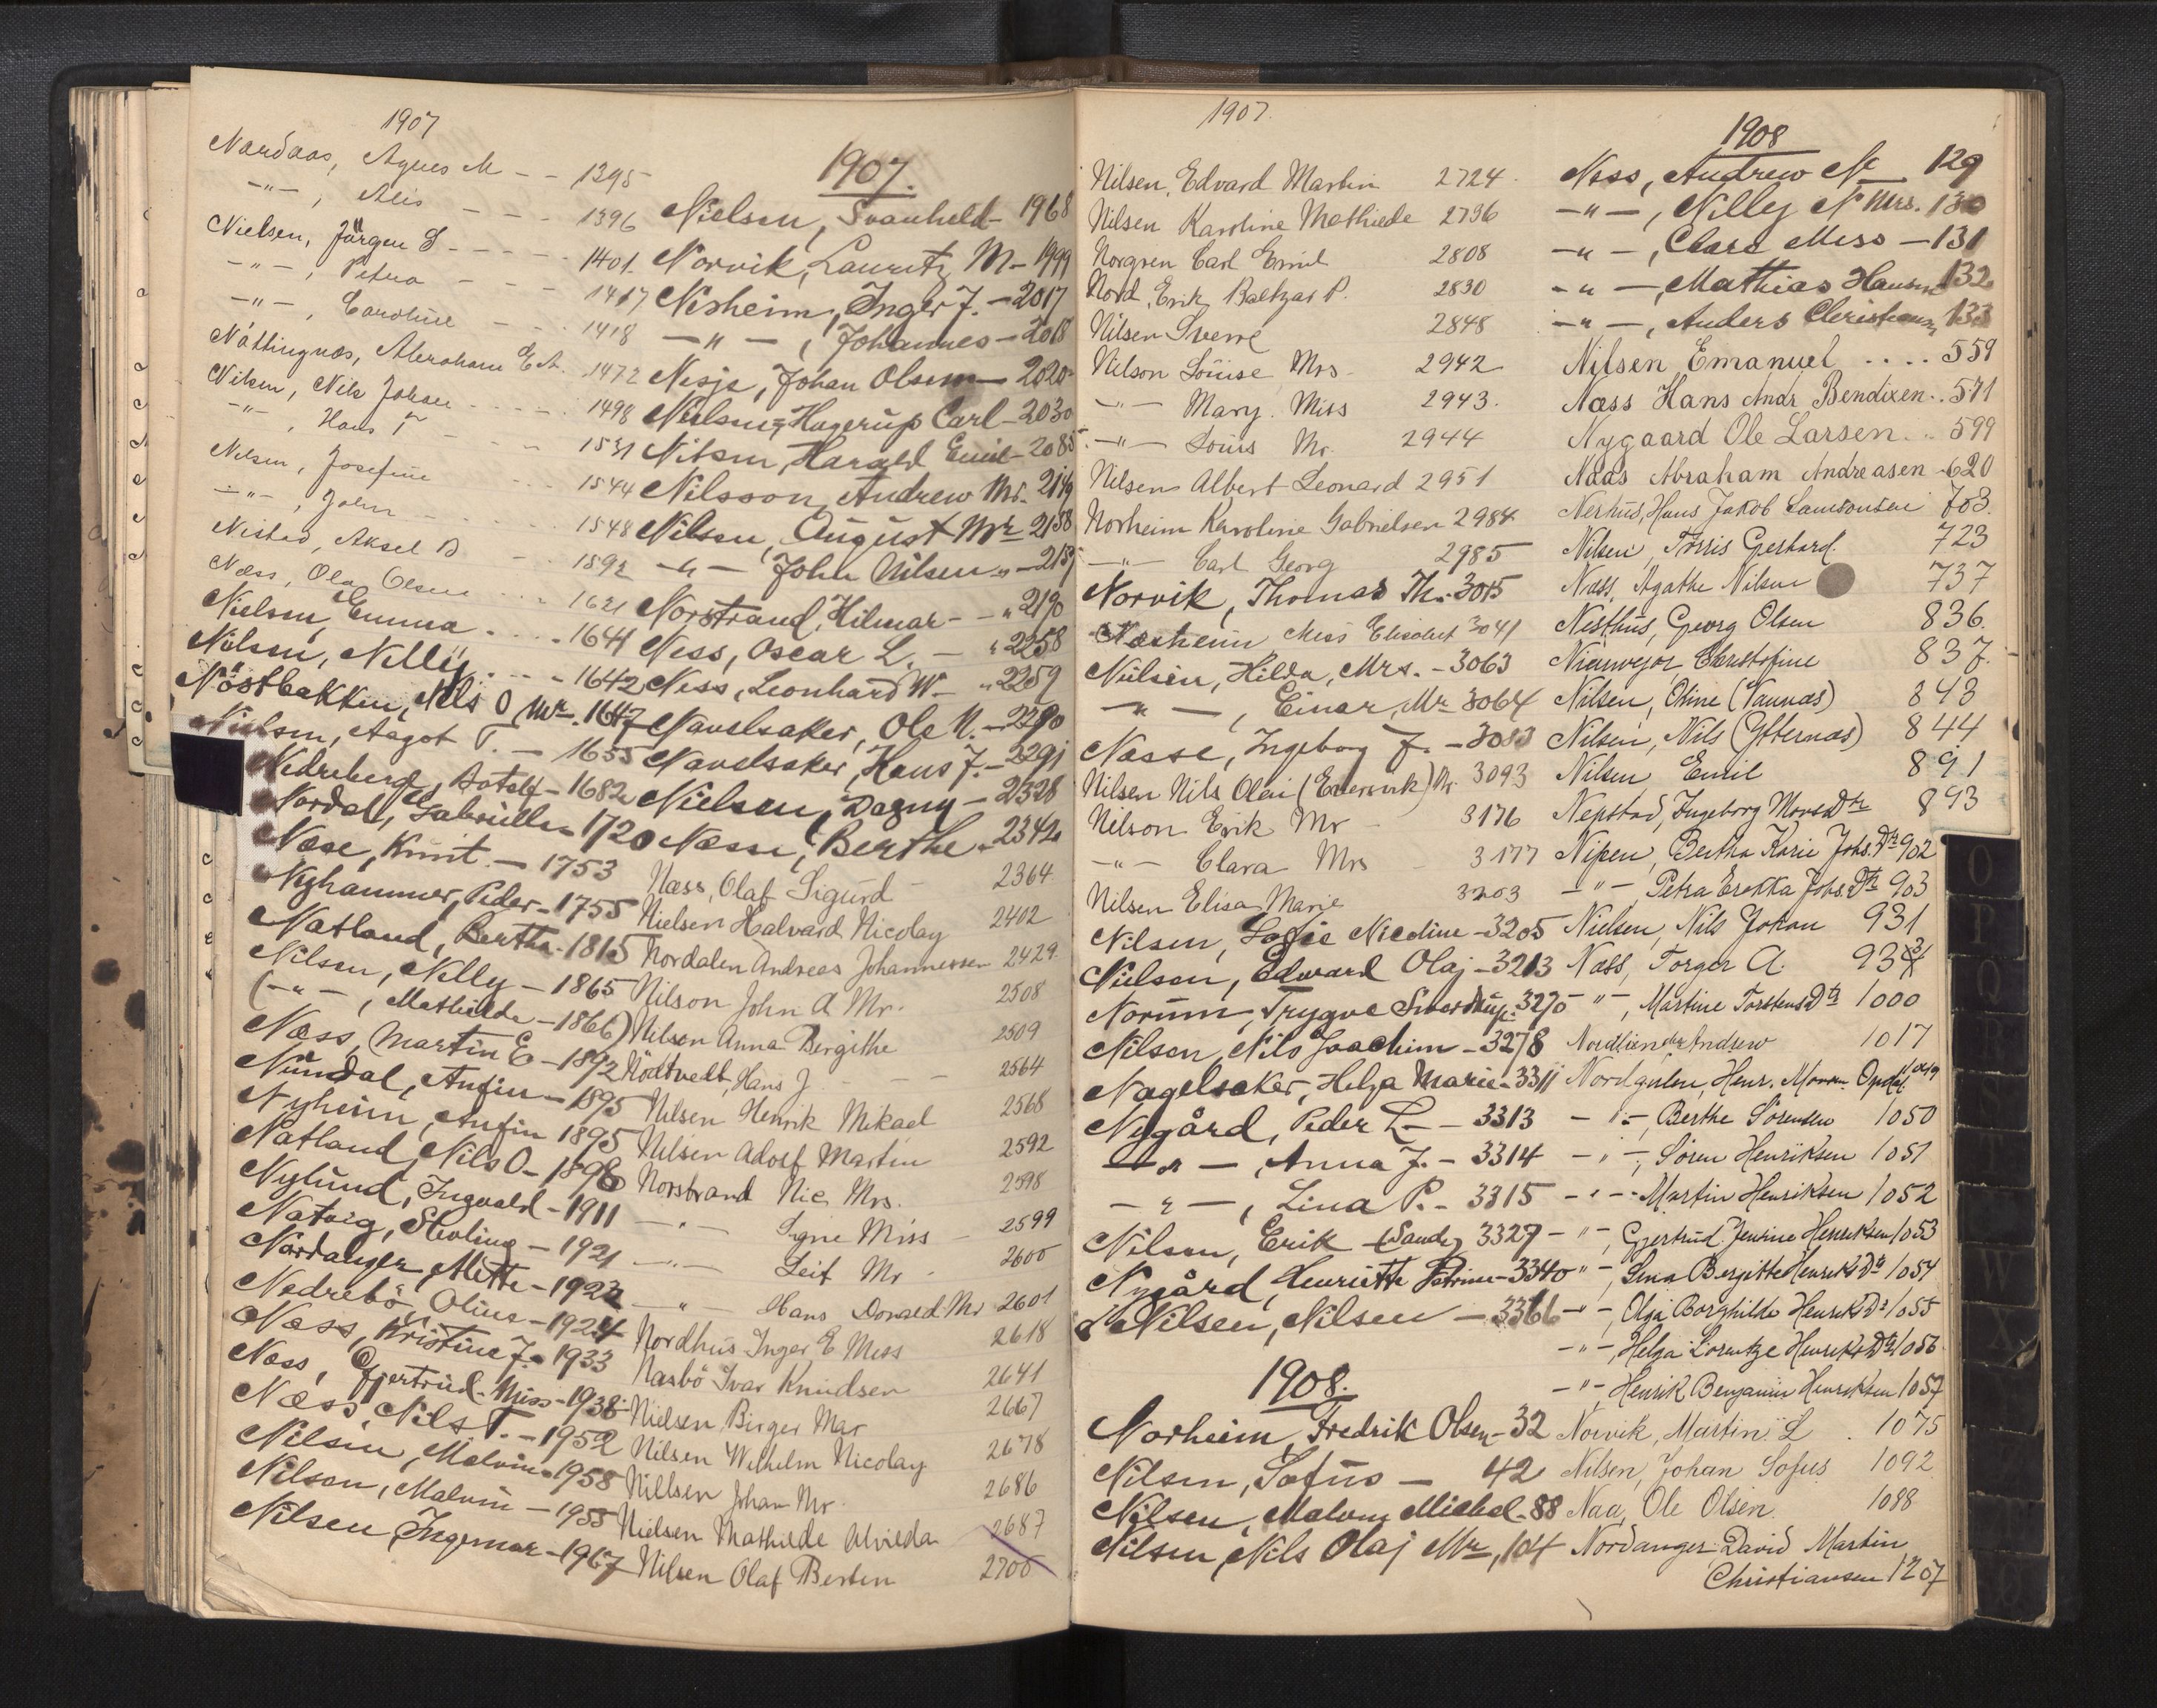 1907
Nordaas, Agnes M - - 1395
-"-, Alis - - - 1396
Nielsen, Jörgen S - - - - 1401.
-"-, Petra - - - 1417
-"-, Caroline - - 1418
Nättingnæs, Abraham E.A. 1472
Nilsen, Nils Johan - - - - 1498
-"-, Hans T - - - 1531
Nilsen, Josefine - - - 1544
-"-, John - - - - - 1548
Nistad, Aksel B - 1592
Næss, Ola Olsen - - - 1621
Nielsen, Emma - - - - 1641
Nilsen, Nelly - - - 1642
Nöstbakken, Nils O Mr. 1647
Nielsen, Aagot T. - 1655
Nedreberg, Botolf - 1682
Nordal, Gabriella - 1720
Næse, Knut - 1753
Nyhammer, Peder - 1755
Natland, Bertha - 1815
Nilsen, Nelly - 1865
(-"-, Mathilde - 1866)
Næss, Martin E - 1892
Nundal, Anfin - 1895
Nyheim, Anfin 1895
Natland, Nils O - 1898
Nylund, Ingvald - 1911
Natvig, Sterling - 1921
Nordanger, Mette - 1923
Nedrebö, Oline - 1924
Næss, Kristine J. - 1933
Næss, Gjertrud Miss - 1938
Næss, Nils T. - 1952
Nilsen, Malvin - 1958
Nilsen, Malvin - 1958
Nilsen Ingemar - 1967
1907.
Nielsen, Svanhild - 1968
Norvik, Lauritz M - 1999
Nesheim, Inger J. - 2017
-"-, Johannes - 2018
Nesje, Johan Olsen - 2020
Nielsen, Hagerup Carl - 2030
Nilsen, Harald Emil - 2085
Nilsson, Andrew Mr. 2149
Nilsen, August Mr 2158
-"- John Nilsen " - 2159
Norstrand, Hilmar - - " 2190
Ness, Oscar L. - " 2258
Ness, Leonhard W - " 2259
Navelsaker, Ole N. - 2290
Navelsaker, Hans J. - 2291
Nielsen, Dagny - 2328
Næsse, Berthe - 2342
Næss, Olaf Sigurd - 2364
Nielsen Halvard Nicolay 2402
Nordalen Andreas Johannessen 2429
Nilson John A Mr. 2508
Nilsen Anna Birgithe 2509
Nödtvedt, Hans J - - - 2564
Nilsen Henrik Mikael 2568
Nilsen Adolf Martin 2592
Norstrand Nic Mrs. 2598
-"- Signe Miss - 2599
-"- Leif Mr - 2600
-"- Hans Donald Mr 2601
Nordhus Inger E Miss 2618
Nasbö Ivar Knudsen 2641
Nielsen Birger Mar 2667
Nilsen Wilhelm Nicolay 2678
Nillsen Johan Mr. 2686
Nielsen Mathilde Alvilda 2687
Nilsen Olaf Berten 2700
1907.
Nilsen, Edvard Martin 2724
Nilsen Karoline Mathilde 2796
Norgren Carl Emil 2808
Nord, Erik Baltzar P. 2830
Nilsen Sverre 2848
Nilson Louise Mrs 2942
-"- Mary. Miss 2943.
-"- Louis Mr. 2944
Nilsen Albert Leonard 2951
Norheim Karoline Gabrielsen 2984
-"- Carl Georg 2985
Norvik, Thomas Th. 3015
Næsheim Miss Elisabet 3041
Nielsen, Hilda, Mrs. - 3063
-"-, Einar, Mr 3064
Næsse, Ingeborg J. - 3083
Nilsen Nils Olai Mr 3093
Nilson Erik Mr - 3176
-"- Clara Mrs - 3177
Nilsen Elisa Marie 3203
Nilsen, Sofie Nicoline - 3205
Nielsen, Edward Olaj - 3213
Norum, Trygve Sverdrup 3270
Nilsen, Nils Joachim - 3278
Nagelsaker, Helga Marie - 3311
Nygård, Peder L - - 3313
-"-, Anna J. - 3314
-"-, Lina P. - 3315
Nilsen, Erik (Sande) 3327
Nygård, Henriette Petrine - 3340
Nilsen, Nilsen - 3366
1908.
Norheim, Fredrik Olsen - 32
Nilsen, Sofus - 42
Nilsen, Malvin Michel - 88
Nilsen, Nils Olaj Mr, 104
1908
Ness, Andrew N 129
-"-, Nelly N Mrs. 130
-"-, Clara Miss - 131
-"-, Mathias Hansen 132
-"-, Anders Christensen 133
Nilsen Emanuel .... 559
Næss Hans Andr Bendixen .. 571
Nygaard Ole Larsen .. 599
Naas Abraham Andreasen - 620
Nerhus, Hans Jakob Samsonsen 703.
Nilsen, Torris Gerhard. 723
Næss, Agathe Nilsen 737
Nesthus, Georg Olsen 836.
Christofine 837.
Nilsen, Oline (Vannæs) 843
Nilsen, Nils (Ytternæs) 844
Nilsen Emil 891
Nepstad, Ingeborg MonsDtr 893
Nipen, Bertha Karie Johs.Dtr 902
-"- Petra Erekka Johs.Dtr 903
Nielsen, Nils Johan 931
Næss, Torger A. 933
-"-, Martine TorstensDtr 1000
Nordlien Andrew 1017
Nordgulen, Henr. Monsen Opdal 1049
-"-, Berthe Sörensen 1050
-"-, Sören Henriksen 1051
-"- Martin Henriksen 1052
-"-, Gjertrud Jensine Henriksen 1053
-"-, Lina Bergitte HenriksDtr 1054
-"-, Olga Borghilda HenriksDtr 1055
-"-, Helga Lorentze HenriksDtr 1056
-"-, Henrik Benjamin Henriksen 1057
Norvik, Martin L . 1075
Nilsen, Johan Sofus 1092
Naa, Ole Olsen. 1088
Nordanger David Martin
Christiansen 1207
O
P